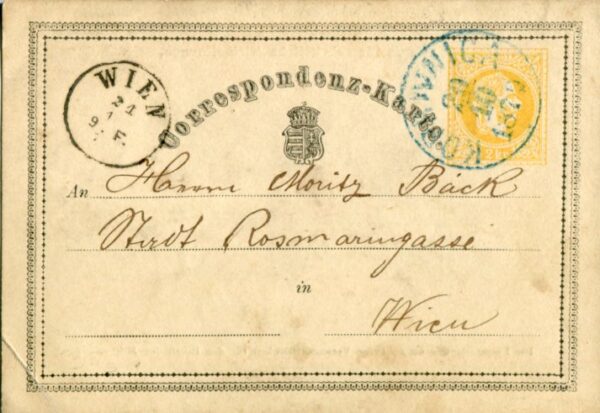 WIEN
21
1
9 F.
Correspondenz-Karte.
An Herrn Moritz Bäck
Stadt Rosmaringasse
in
Wien